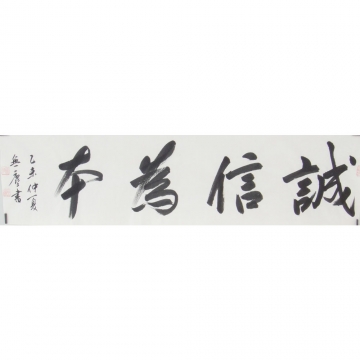 誠信為本
乙未仲夏
興慶書